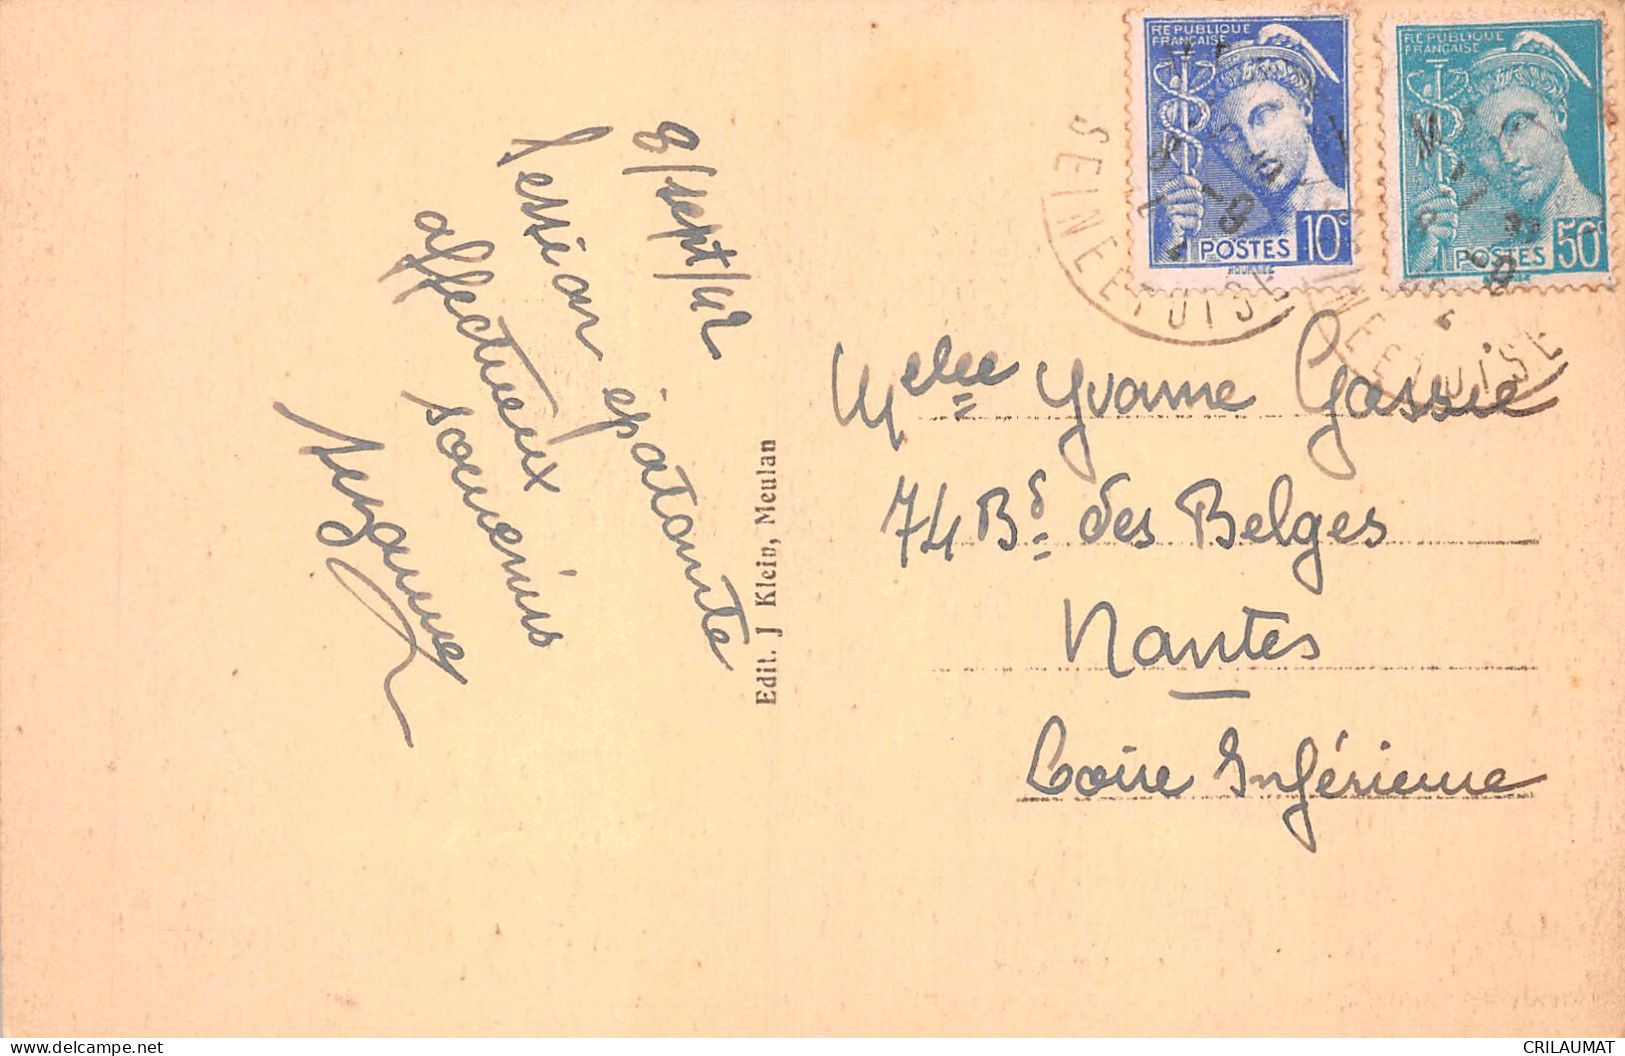 8/sept/42
Session épatante
affectueux
souvenirs
Suzanne
Edit. J Klein, Meulan
REPUBLIQUE
FRANÇAISE
POSTES 10c
REPUBLIQUE
FRANÇAISE
POSTES 50c
SEINE ET OISE
SEINE ET OISE
Melle Yvonne Gassie
74 Bd des Belges
Nantes
Loire Inférieure
CRILAUMAT